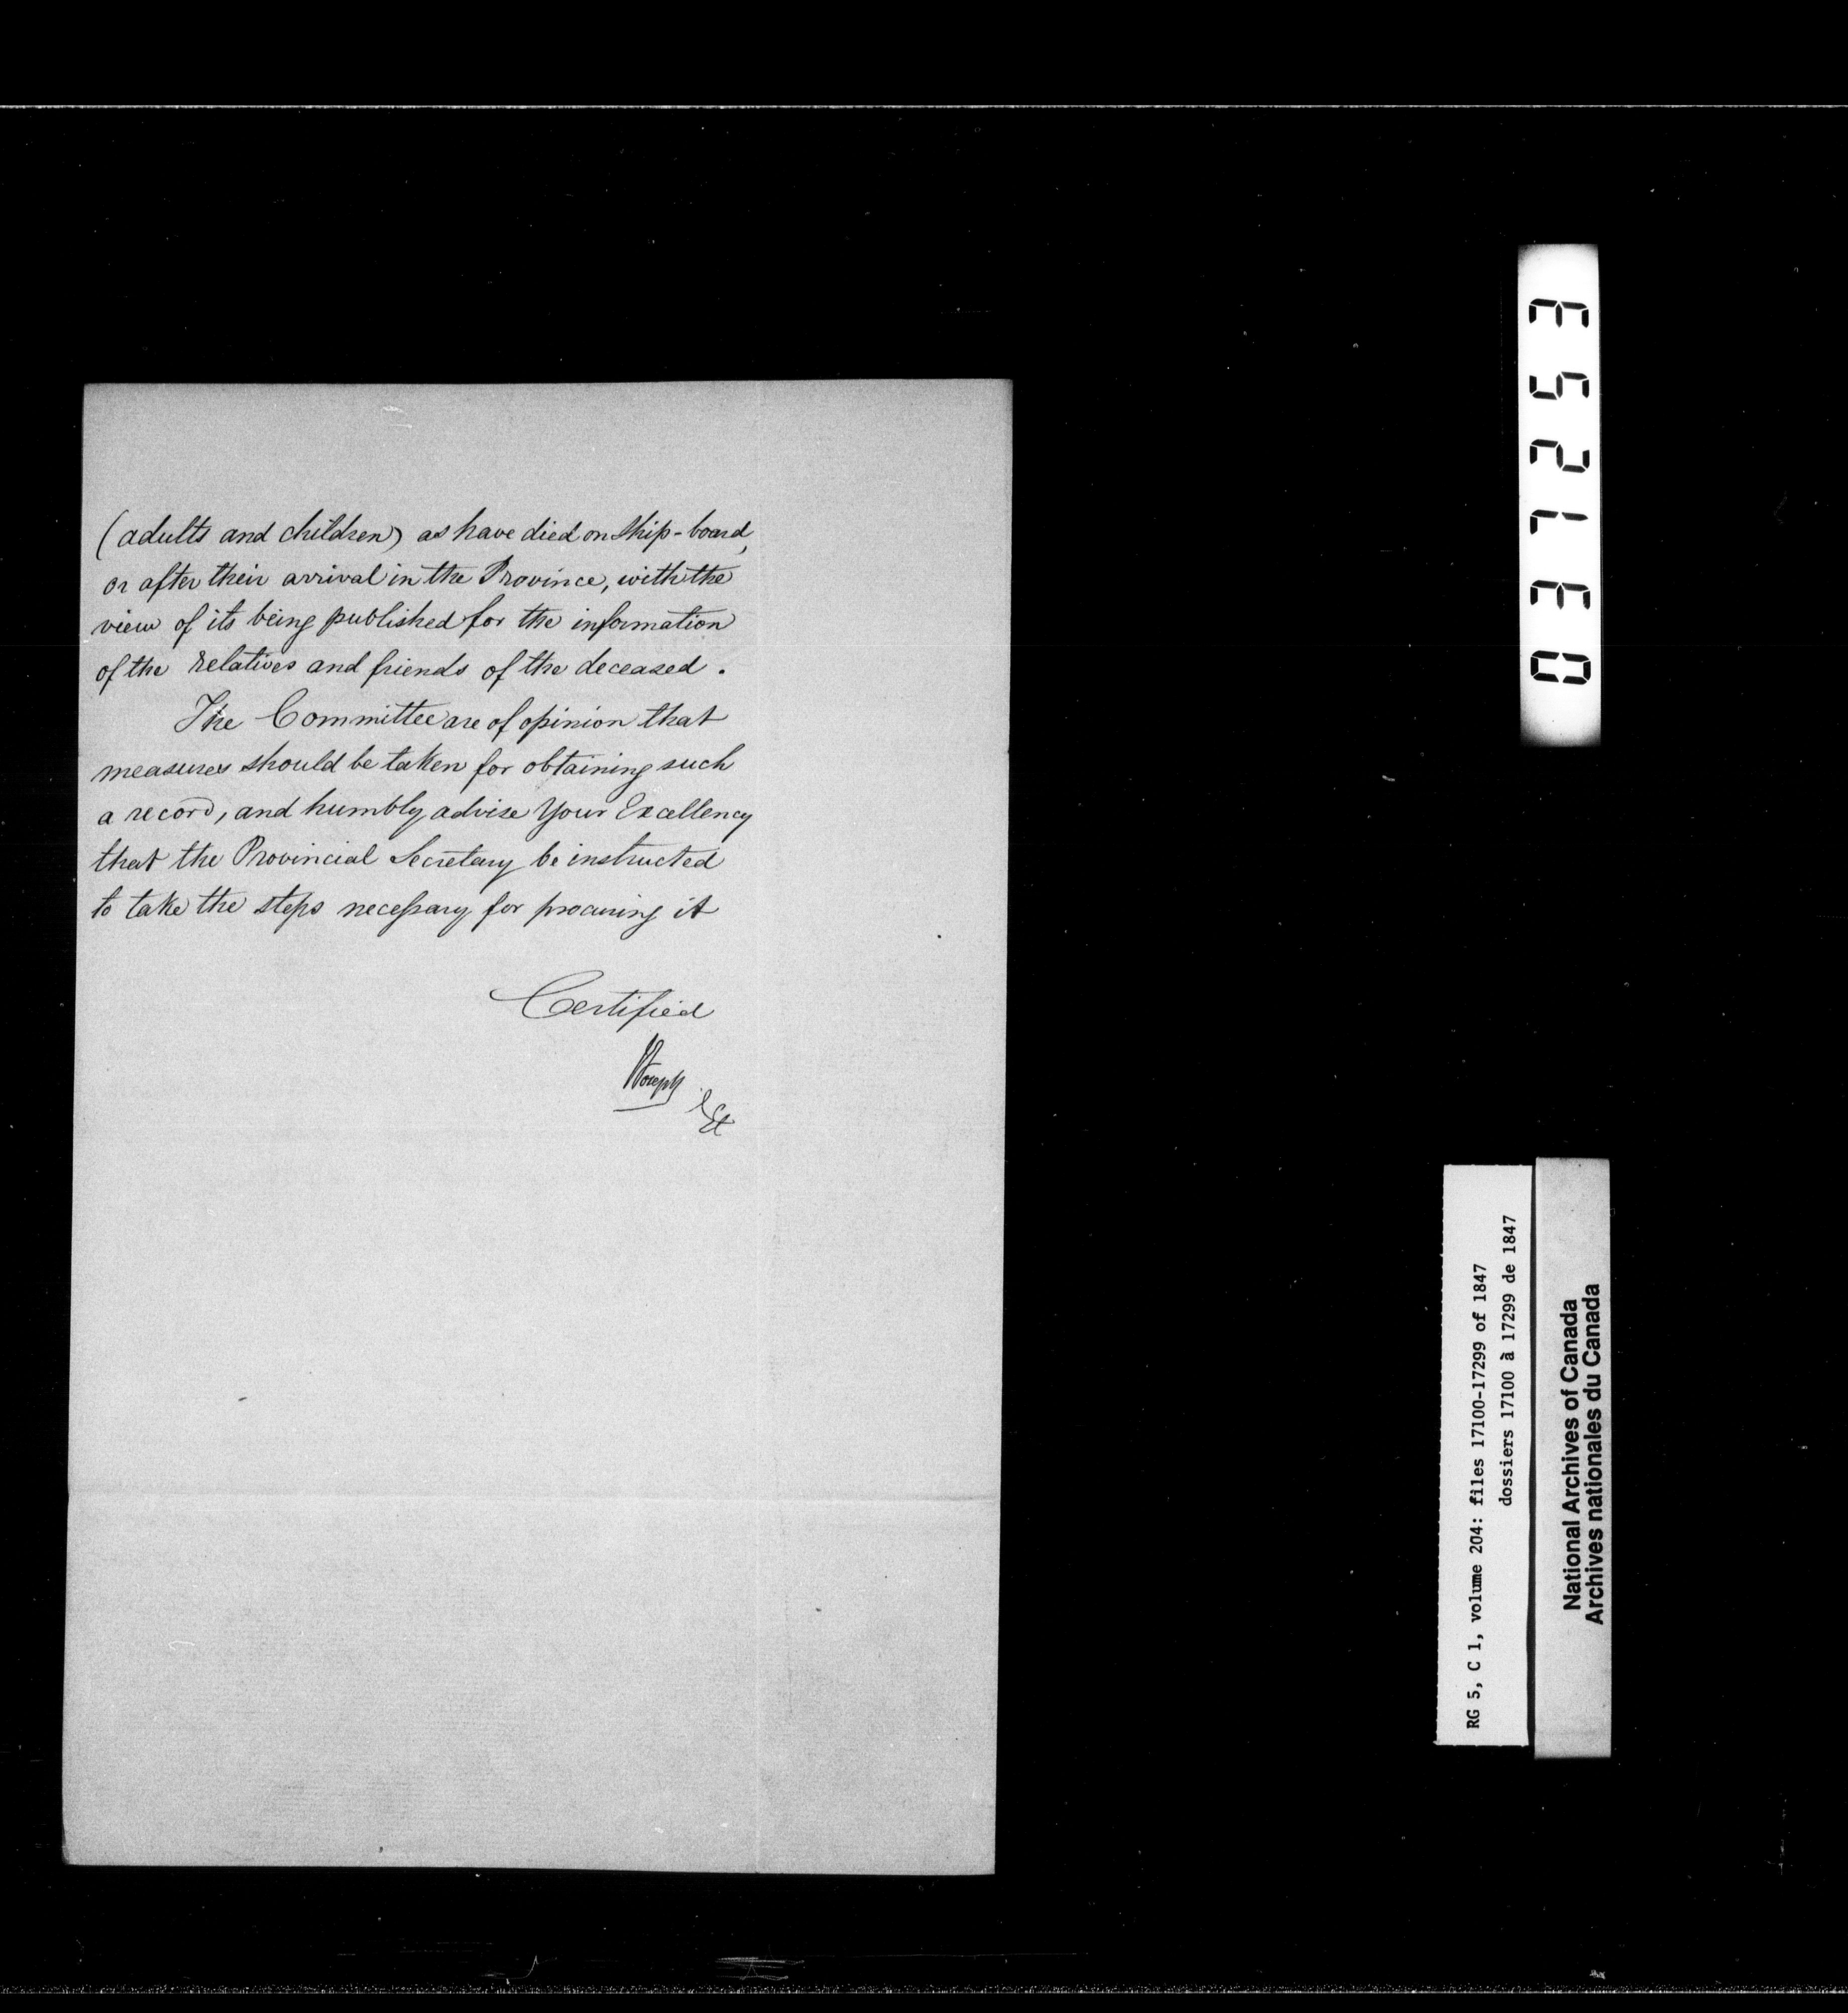 (adults and children) as have died on ship-board,
or after their arrival in the Province, with the
view of its being published for the information
of the relatives and friends of the deceased.
The Committee are of opinion that
measures should be taken for obtaining such
a record, and humbly advise Your Excellency
that the Provincial Secretary be instructed
to take the steps necessary for procuring it
Certified
Joseph
037253
RG 5, C 1, volume 204: files 17100-17299 of 1847
dossiers 17100 à 17299 de 1847
National Archives of Canada
Archives nationales du Canada